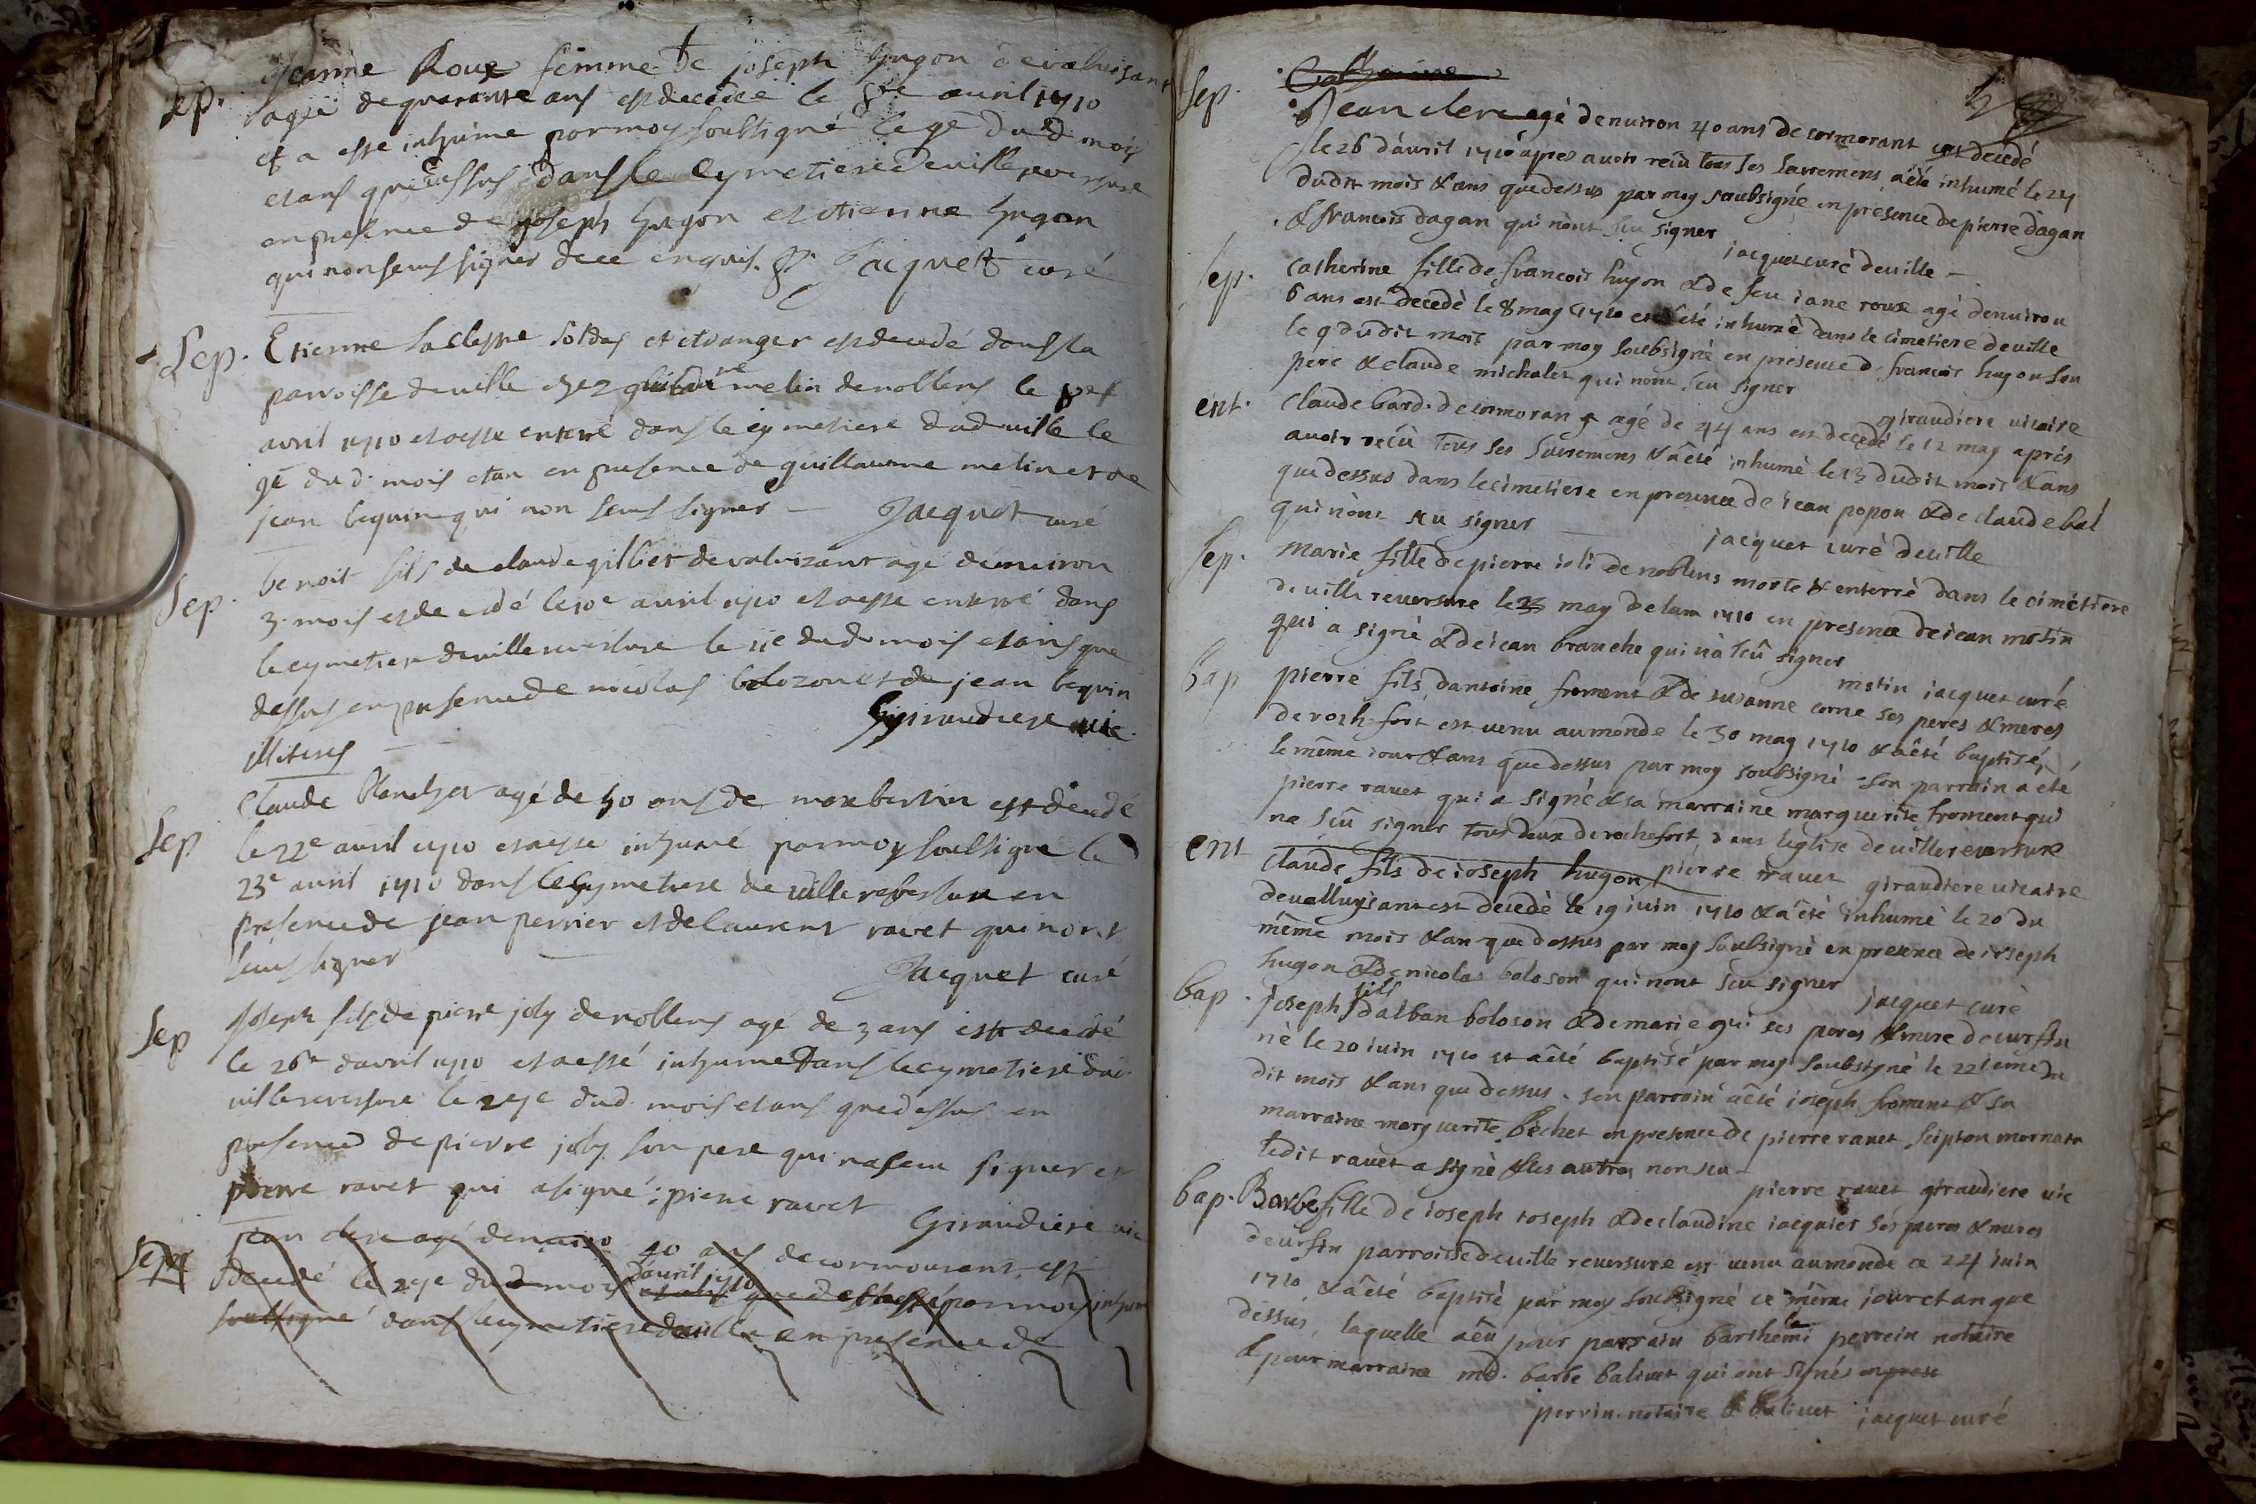 Sep. Jeanne Roux femme de joseph hugon devaluisant
agée de quarante ans est decedée le 8e avril 1710
et a esté inhumé par moy soubsigné le 9e dud mois
et ans que dessus dans le cymetiere de villereversure
en presence de joseph hugon et etienne hugon
qui non sceus signer de ce enquis. Jacquet curé
Sep. Etienne soldat et etranger est decedé dans la
parroisse deville chez melin de nollens le
avril 1710 et a esté enterré dans le cymetiere dud ville le
9e dud. mois et an en presence de guillaume melin et de
jean bequin qui non sceus signer Jacquet curé
Sep. benoit fils de claude gilliet de valuizant agé denviron
3. mois est decedé le 10e avril 1710 et a esté enterré dans
le cymetiere de villereversure le 11e dud mois et ans que
dessus en presence de nicolas bolozon et de jean bequin
illiteres Giraudiere vic.
Sep Claude agé de 50 ans de est decedé
le 22e avril 1710 et a esté inhumé par moy soubsigné le
23e avril 1710 dans le cymetiere de villereversure en
presence de jean perrier et de laurent ravet qui nont
sceus signer Jacquet curé
Sep Joseph fils de pierre joly de nollens agé de 3 ans est decedé
le 26e davril 1710 et a esté inhumé dans le cymetiere dud
villereversure le 27e dud. mois et ans que dessus en
presence de pierre joly son pere qui na sceu signer et
pierre ravet qui a signé: pierre ravet Giraudiere vic
Sep jean clerc agé denviron 40 ans de cormourant est
decedé le 27e dud mois d'avril 1710 et ans que dessus par moy inhum
soubsigné dans le cymetiere deville en presence de
Catherine
Sep. Jean clerc agé denuiron 40 ans de cormorant est decedé
le 26 d'avril 1710 apres auoir reçu tous ses sacremens a été inhumé le 27
dudit mois & ans que dessus par moy soubsigné en presence de pierre dagan
& francois dagan qui nont sçu signer
jacquet curé deuille
Sep. Catherine fille de francois hugon & de feu iane roux agé denuiron
6 ans est decedé le 8 may 1710 et a été inhumé dans le cimetiere deuille
le 9 dudit mois par moy soubsigné en presence d. francois hugon son
pere & claude michalet qui nont sçu signer
giraudiere uicaire
ent. Claude bard. de cormoran agé de 44 ans est decedé le 12 may aprés
auoir reçû tous ses sacremens & a été inhumé le 13 dudit mois & ans
que dessus dans le cimetiere en presence de iean popon & de claude bal
qui nont sçu signer jacquet curé deuille
Sep. marie fille de pierre ioli de noblens morte & enterré dans le cimetiere
deuille reuersure le 23 may de lan 1710 en presence de iean motin
qui a signé & de iean branche qui n'a sçû signer
motin jacquet curé
bap pierre fils dantoine froment & de susanne corne ses peres & meres
de rochefort est uenu aumonde le 30 may 1710 & a été baptisé
le même iour & ans que dessus par moy soubsigné son parrain a été
pierre rauet qui a signé & sa marraine marguerite froment qui
na sçû signer tous deux de rochefort, dans leglise deuillereuersure
pierre rauet giraudiere uicaire
ent Claude fils de ioseph hugon
deualluysant est decedé le 19 iuin 1710 & a été inhumé le 20 du
même mois & an que dessus par moy soubsigné en presence de ioseph
hugon & de nicolas boloson qui nont sçu signer
jacquet curé
bap. joseph fils dalban boloson & de marie gui ses peres & mere deursin
né le 20 iuin 1710 et a été baptisé par moy soubsigné le 22ieme du
dit mois & ans que dessus. son parrain a été ioseph froment & sa
marraine marguerite bechet en presence de pierre rauet scipion mornat
ledit rauet a signé & les autres non sçu
pierre rauet giraudiere uic
bap. Barbe fille de ioseph ioseph & de claudine iacquier ses peres & meres
deursin parroisse deuille reuersure est uenu aumonde ce 24 iuin
1710 & a été baptisé par moy soubsigné ce même jour et an que
dessus, laquelle a eu pour parrain barthelemi perrein notaire
& pour marraine md. barbe baliuet qui ont signés en pres
perrin notaire & baliuet jacquet curé